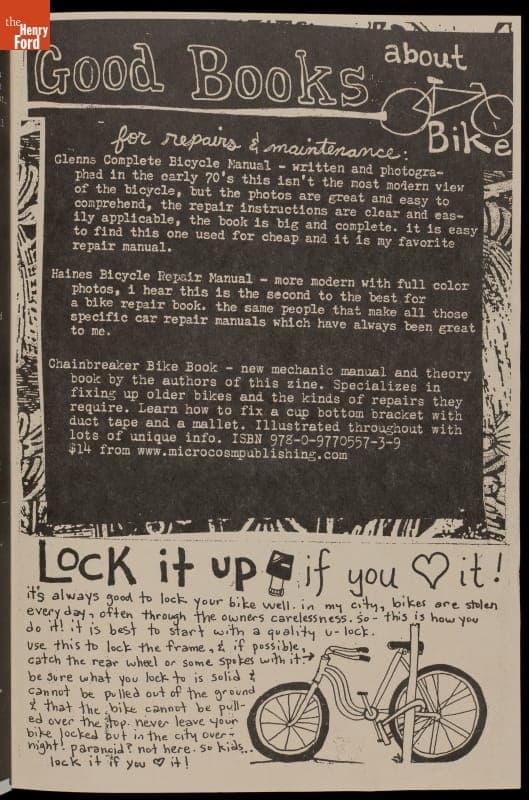 the
Henry
Ford
Good Books about
Bike
for repairs & maintenance:
Glenns Complete Bicycle Manual - written and photogra-
phed in the early 70's this isn't the most modern view
of the bicycle, but the photos are great and easy to
comprehend, the repair instructions are clear and eas-
ily applicable, the book is big and complete. it is easy
to find this one used for cheap and it is my favorite
repair manual.
Haines Bicycle Repair Manual - more modern with full color
photos, i hear this is the second to the best for
a bike repair book. the same people that make all those
specific car repair manuals which have always been great
to me.
Chainbreaker Bike Book - new mechanic manual and theory
book by the authors of this zine. Specializes in
fixing up older bikes and the kinds of repairs they
require. Learn how to fix a cup bottom bracket with
duct tape and a mallet. Illustrated throughout with
lots of unique info. ISBN 978-0-9770557-3-9
$14 from www.microcosmpublishing.com
Lock it up if you ♡ it!
it's always good to lock your bike well. in my city, bikes are stolen
everyday, often through the owners carelessness. so- this is how you
do it! it is best to start with a quality u-lock.
use this to lock the frame, & if possible,
catch the rear wheel or some spokes with it→
be sure what you lock to is solid &
cannot be pulled out of the ground
& that the bike cannot be pull-
ed over the top. never leave your
bike locked out in the city over-
night! paranoid? not here. so kids..
lock it if you ♡ it!